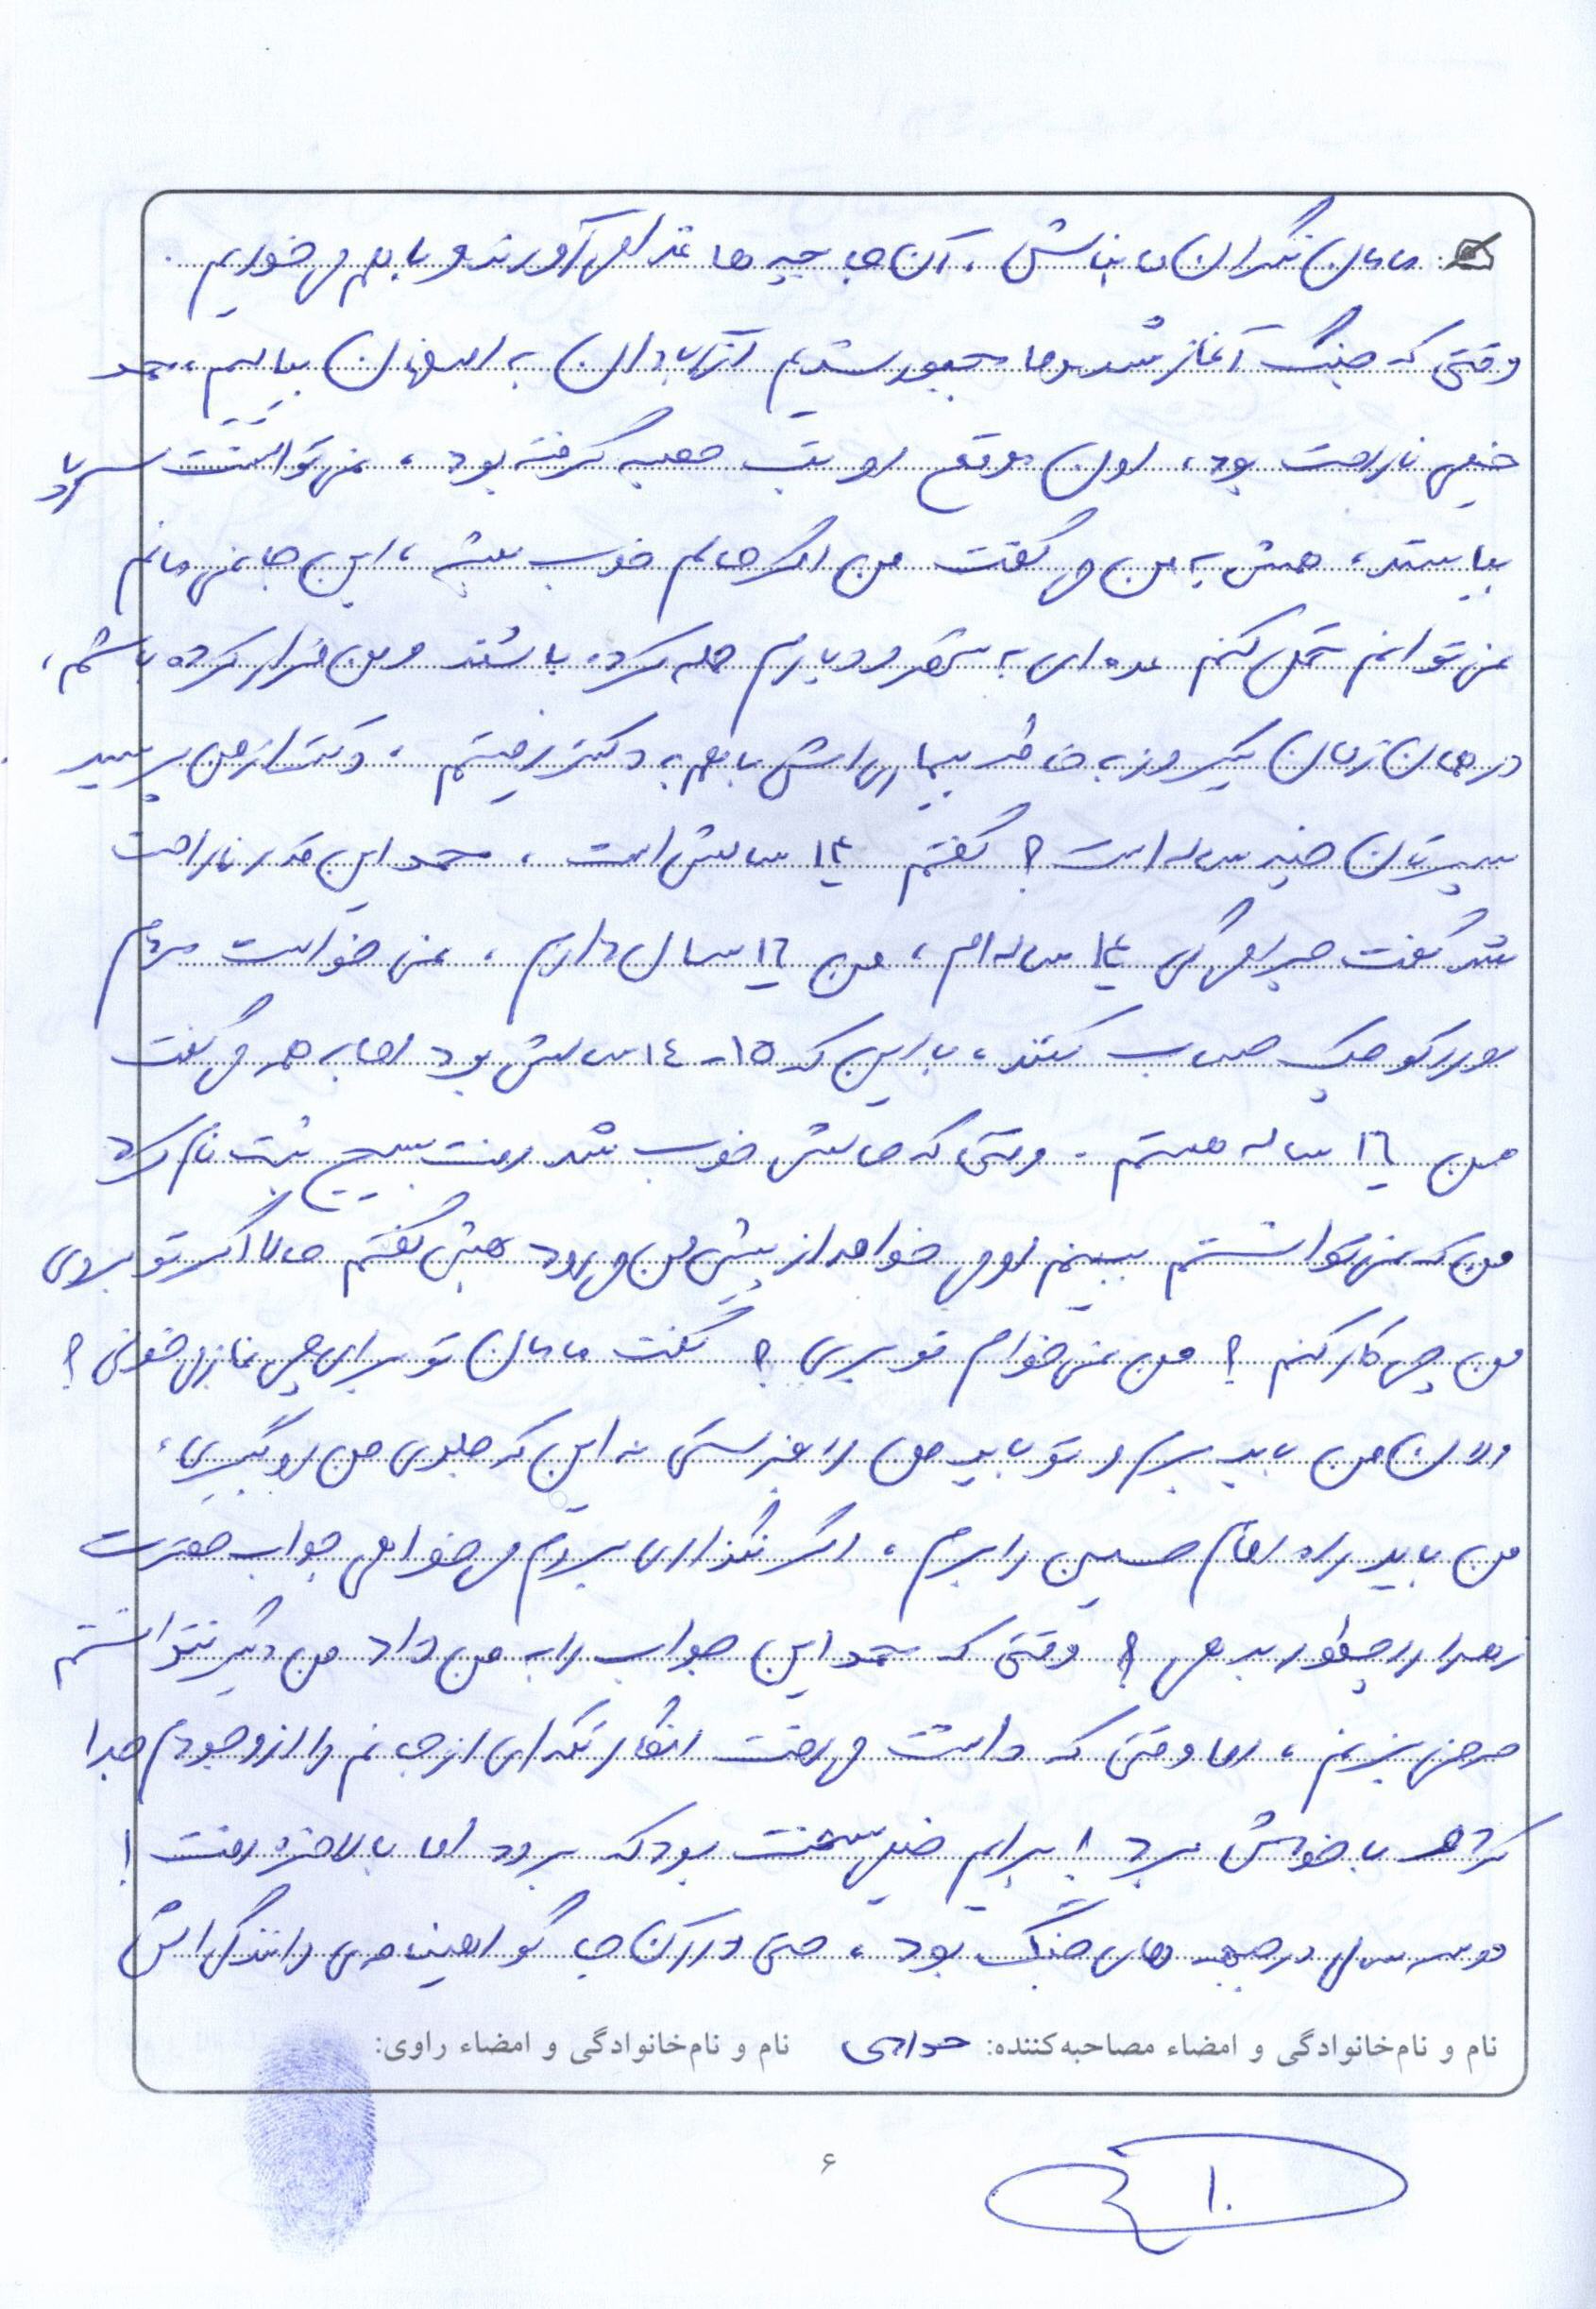 مامان نگران ما نباش، آن جا بچه ها غذا می آورند و با هم می خوریم.
وقتی که جنگ آغاز شد و ما مجبور شدیم از آبادان به اصفهان بیاییم، محمد
خیلی ناراحت بود، اون موقع او تب حصبه گرفته بود، نمی توانست سر پا
بیایستد، همش به من می گفت من اگر حالم خوب بشه، این جا نمی مانم
نمی توانم تحمل کنم عده ای به شهر و دیارم حمله کرده باشند و من فرار کرده باشم،
در همان زمان یک روز به خاطر بیماری اش با هم به دکتر رفتیم، دکتر از من پرسید
پسرتان چند ساله است؟ گفتم ۱۴ سالش است، محمد این قدر ناراحت
شد گفت چرا می گی ۱۴ ساله ام، من ۱۶ سال دارم، نمی خواست مردم
او را کوچک حساب کنند، با این که ۱۵-۱۴ سالش بود اما به همه می گفت
من ۱۶ ساله هستم. وقتی که حالش خوب شد رفت بسیج ثبت نام کرد
من که نمی توانستم ببینم او می خواهد از پیش من می رود همش گفتم حالا اگر تو بروی
من چی کار کنم؟ من نمی خوام تو بری؟ گفت مامان تو برای چی نماز می خوانی؟
الان من باید برم و تو باید من را بفرستی نه این که جلوی من رو بگیری،
من باید راه امام حسین را برم، اگر نگذاری بروم می خواهی جواب حضرت
زهرا را چطور بدهی؟ وقتی که محمد این جواب را به من داد من دیگر نتوانستم
حرفی بزنم، اما وقتی که داشت می رفت انگار تکه ای از جانم را از وجودم جدا
کرد و با خودش برد! برایم خیلی سخت بود که برود اما بالاخره رفت!
دو سه سالی در جبهه های جنگ بود، حتی در آن جا گواهینامه ی رانندگی اش
نام و نام‌خانوادگی و امضاء مصاحبه‌کننده: نام و نام‌خانوادگی و امضاء راوی:
۶
۱۰